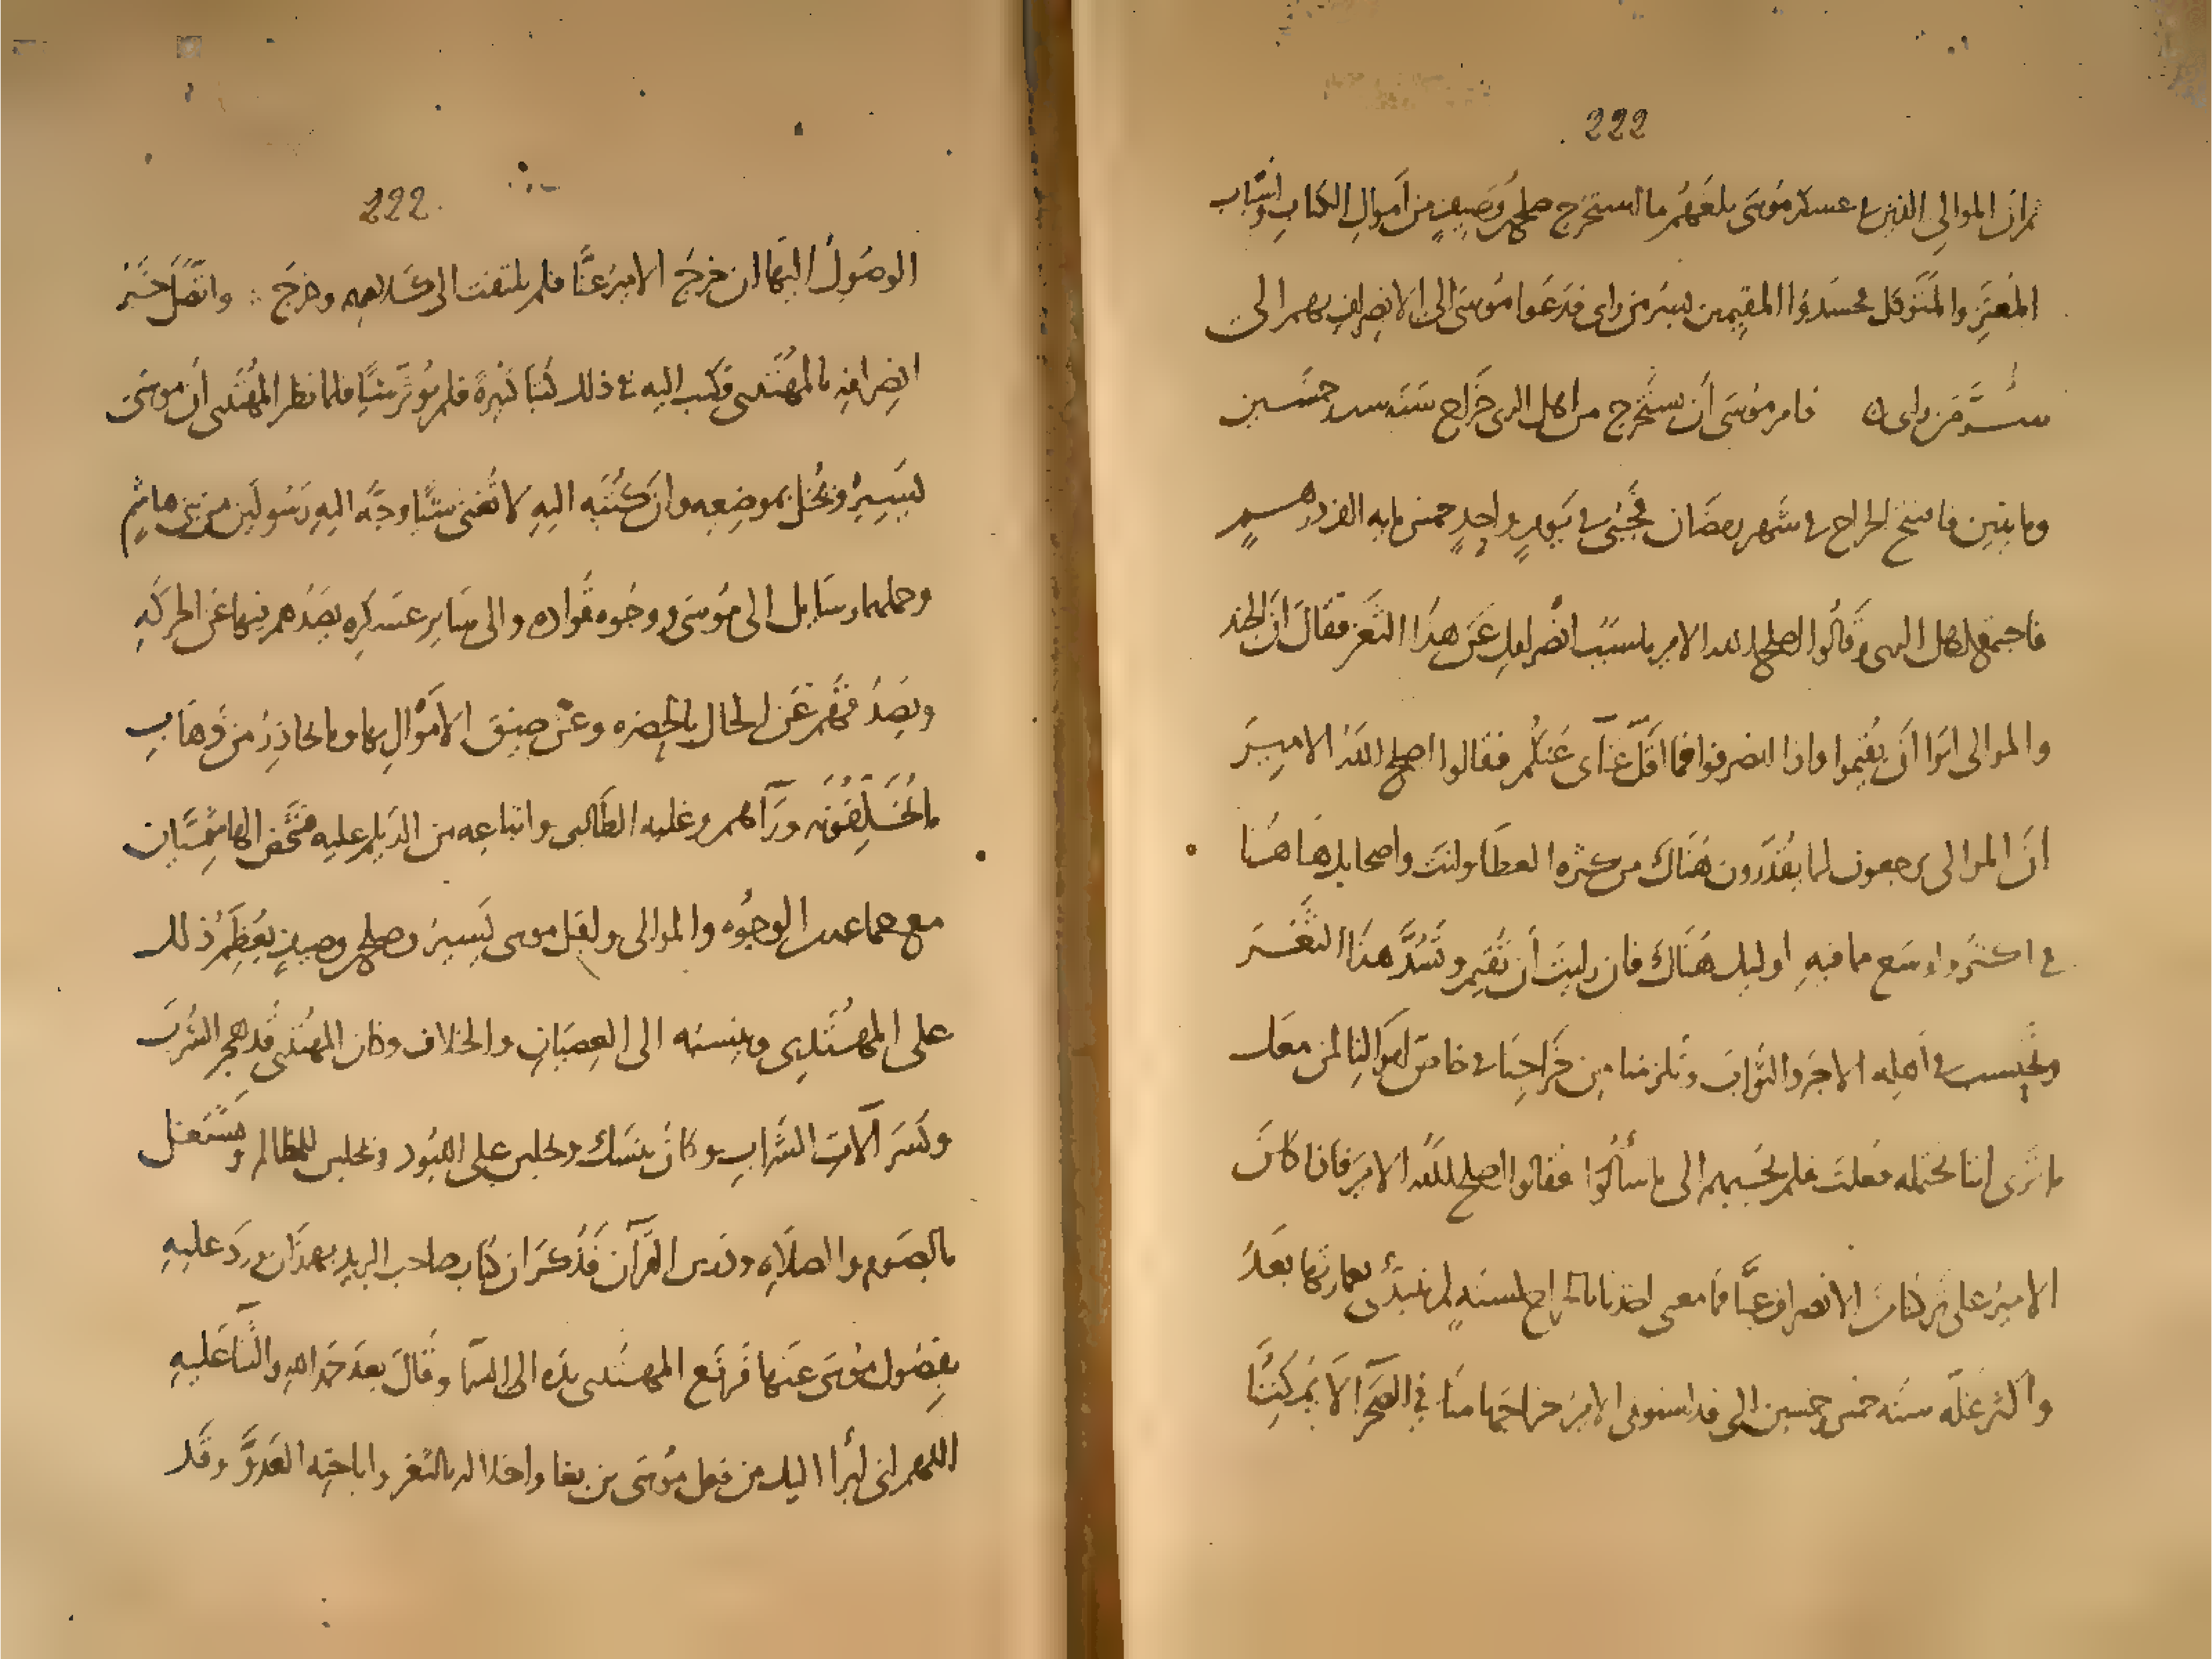 222
ثم ان الموالي الذين في عسكر موسى بلغهم ما استخرج صلح بن وصيف من اموال الكتاب واسباب
المعتز والمتوكل فحسدوا المقيمين بسر من راى فدعوا موسى الى الانصراف بهم الى
سر من راى فامر موسى أن يستخرج من اهل الرى خراج سنة ست وخمسين
ومايتين فافتتح الخراج في شهر رمضان فجبى في يوم واحد خمس مايه الف درهم
فاجتمع اهل الرى وقالوا اصلح الله الامير ما سبب انصرافك عن هذا الثغر فقال ان الجند
والموالى ابوا أن يقيموا واذا انصرفوا فما اقل غناى عنكم فقالوا اصلح الله الامير
ان الموالى يرجعون لما يقدرون هناك من كثره العطا وانت واصحابك هاهنا
في اكثر واوسع مما فيه اوليك هناك فان رايت أن تقيم وتسد هذا الثغر
وتحتسب في اهله الاجر والثواب وتلزمنا من خراجنا في خاص اموالنا لمن معك
ما ترى انا نحتمله فعلت فلم يجيبهم الى ما سألوا فقالوا اصلح الله الامير فاذا كان
الامير على تركنا الانصراف عنا فما معنى اخذنا بالخراج لسنة لم نبتدئ بعمارتها بعد
واكثر غلة سنه خمس وخمسين التى قد استوفى الامير خراجها منا في الصحرا لا يمكننا
222
الوصول اليها ان خرج الامير عنا فلم يلتفت الى كلامهم وخرج واتصل خبر
انصرافه بالمهتدى فكتب اليه في ذلك كتبا كثيرة فلم يؤثر شيا فلما نظر المهتدى أن موسى
يسير ونحل بموضعه وان كتبه اليه لا تغنى شيا وجه اليه رسولين من بنى هاشم
وحملهما رسايل الى موسى ووجوه قواده والى ساير عسكره يصدهم فيها عن الحركه
ويصدقهم عن الحال بالحضره وعن ضيق الاموال بها وما يحاذر من ذهاب
ما يخلفونه ورآهم وغلبه الطالبى واتباعه من الديلم عليه فشخص الهاشميان
مع جماعه من الوجوه والموالى واقبل موسى يسير وصلح بن وصيف يعظم ذلك
على المهتدى وينسبه الى العصيان والخلاف وكان المهتدى قد هجر الشرب
وكسر آلات الشراب وكان ينسك ويجلس على اللبود ويجلس للمظالم ويشتغل
بالصوم والصلاه ودرس القرآن فذكر ان كتاب صاحب البريد بهمذان ورد عليه
بفصول موسى عنها فرفع المهتدى يده الى السما وقال بعد حمد الله والثنا عليه
اللهم انى ابرأ اليك من فعل موسى بن بغا واخلاله بالثغر واباحته العدو وقد